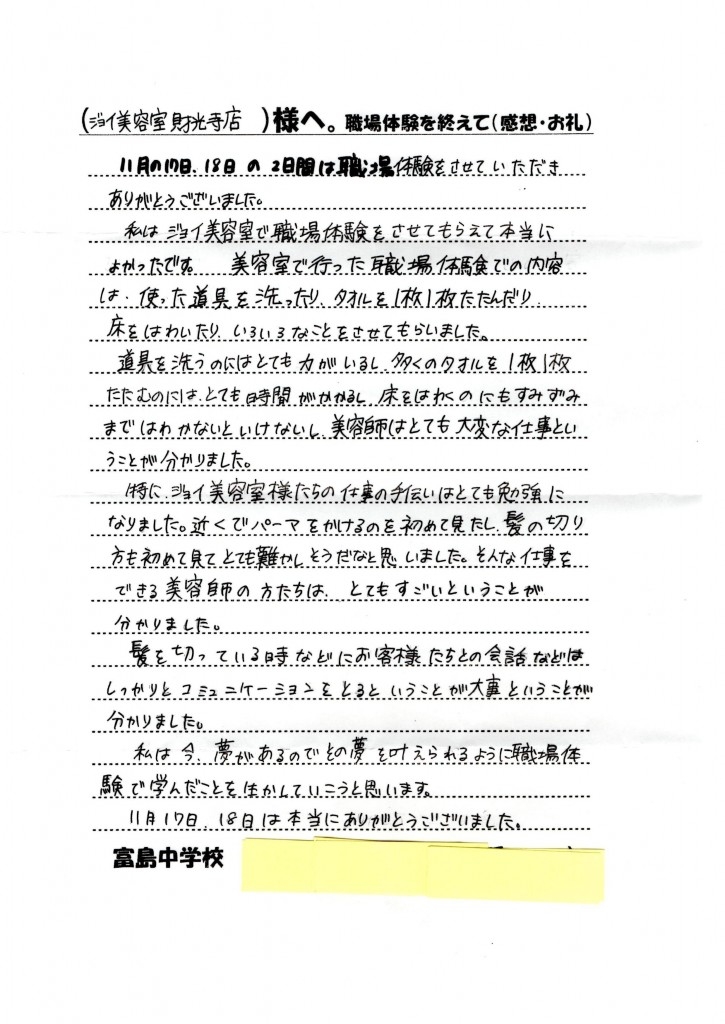 (ジョイ美容室財光寺店 )様へ。職場体験を終えて(感想・お礼)
11月の17日、18日の2日間は職場体験をさせていただき
ありがとうございました。
私はジョイ美容室で職場体験をさせてもらえて本当に
よかったです。 美容室で行った職場体験での内容
は、使った道具を洗ったり、タオルを1枚1枚たたんだり、
床をはわいたり、いろいろなことをさせてもらいました。
道具を洗うのにはとても力がいるし、多くのタオルを1枚1枚
たたむのには、とても時間がかかるし、床をはわくのにもすみずみ
まではわかないといけないし、美容師はとても大変な仕事とい
うことが分かりました。
特に、ジョイ美容室様たちの仕事の手伝いはとても勉強に
なりました。近くでパーマをかけるのを初めて見たし、髪の切り
方も初めて見てとても難かしそうだなと思いました。そんな仕事を
できる美容師の方たちは、とてもすごいということが
分かりました。
髪を切っている時などにお客様たちとの会話などは
しっかりとコミュニケーションをとるということが大事ということが
分かりました。
私は今、夢があるのでその夢を叶えられるように職場体
験で学んだことを生かしていこうと思います。
11月17日、18日は本当にありがとうございました。
富島中学校